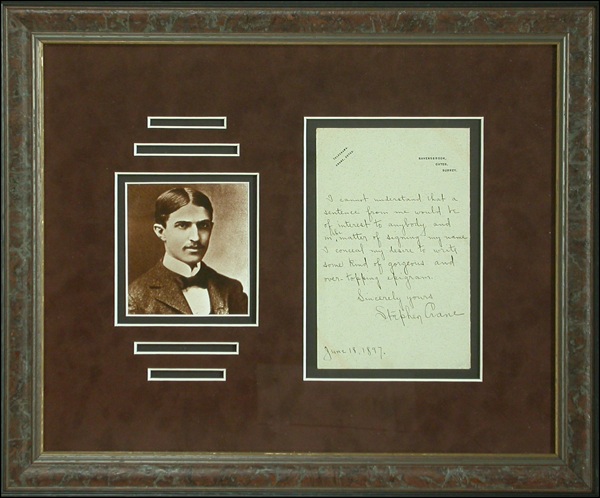 RAVENSBROOK,
OXTED,
SURREY.
I cannot understand that a
sentence from me would be
of interest to anybody and
in the matter of signing my name
I conceal my desire to write
some kind of gorgeous and
over-topping epigram.
Sincerely yours
Stephen Crane
June 18, 1897.